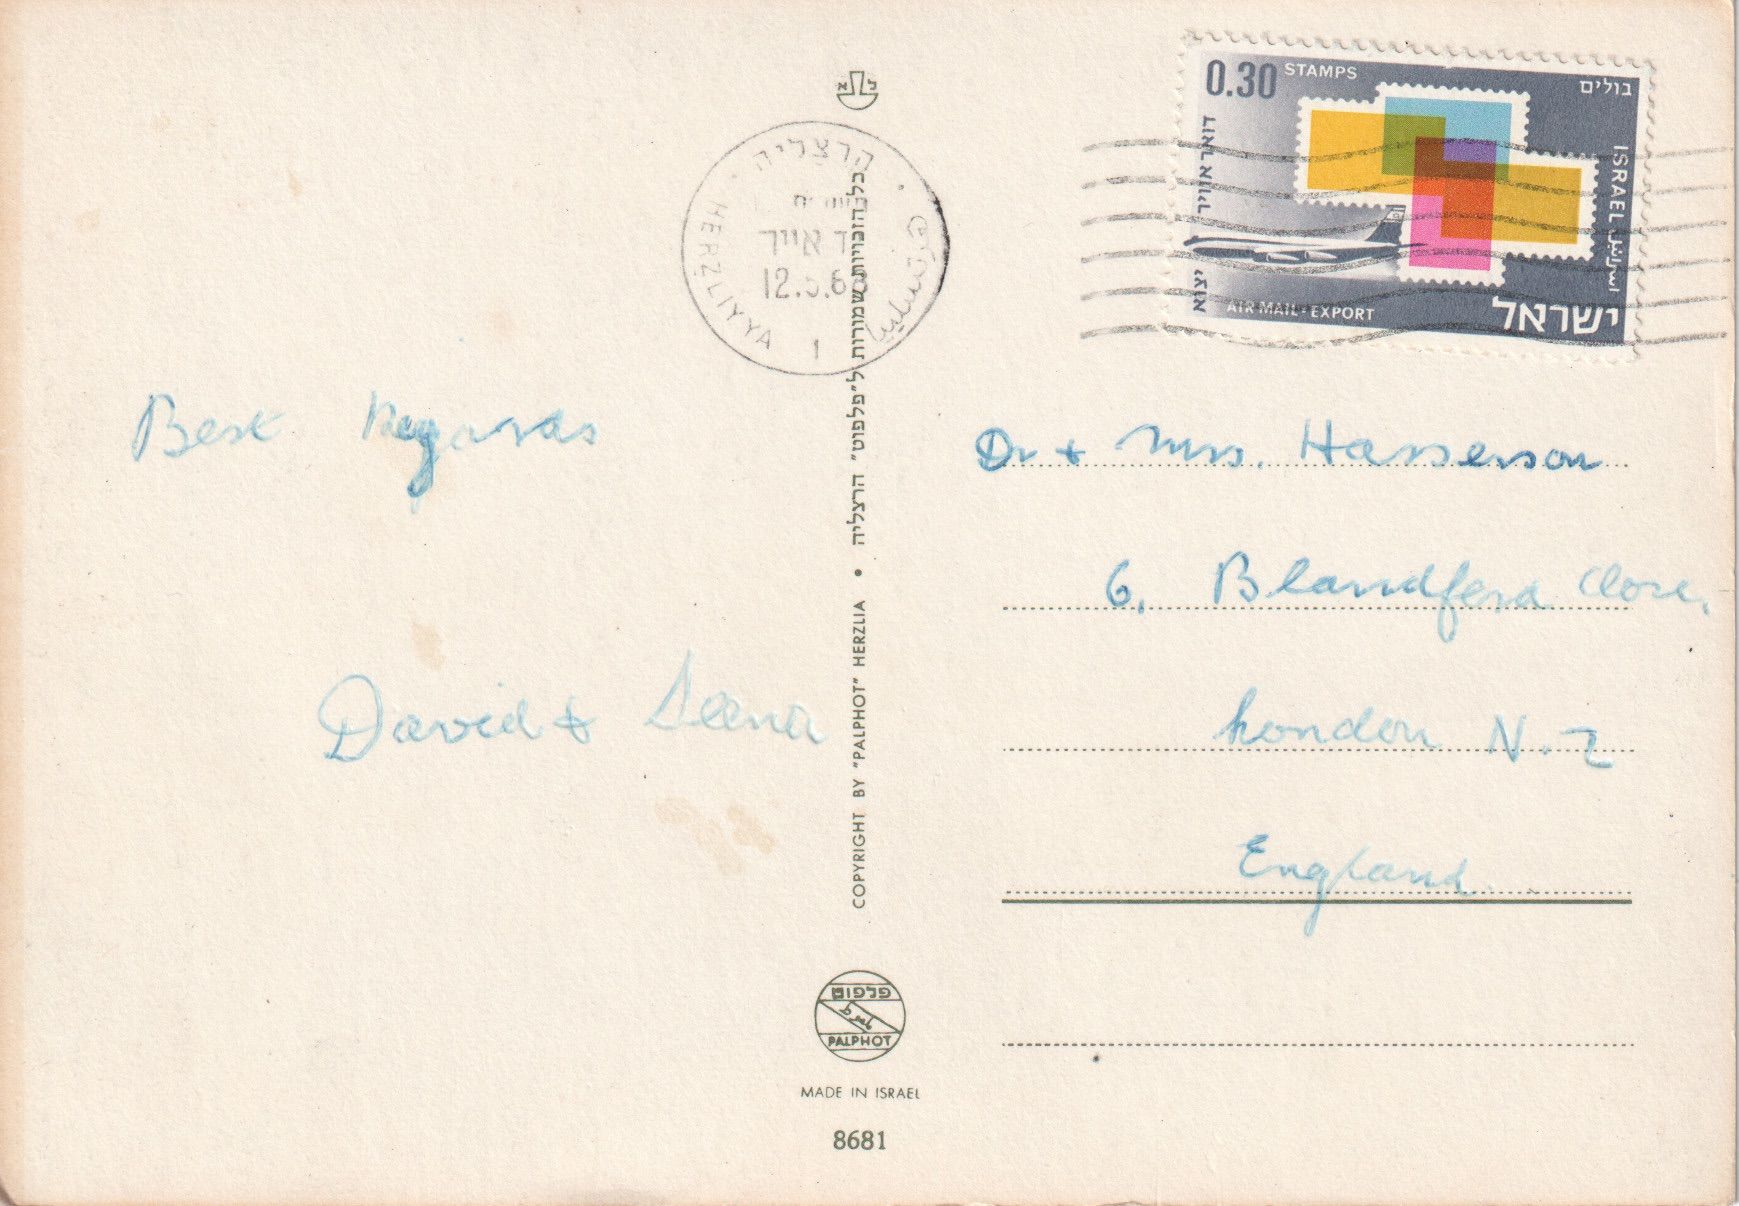 לא
הרצליה
ד אייר
12.5.68
HERZLIYYA 1
0.30 STAMPS
בולים
דואר אוויר
יצוא
ISRAEL
ישראל
AIR MAIL-EXPORT
Best Regards
David & Leena
Dr + Mrs. Hasserson
6, Blandford Close,
London N.2
England.
כל הזכויות שמורות ל"פלפוט" הרצליה • COPYRIGHT BY "PALPHOT" HERZLIA
פלפוט
PALPHOT
MADE IN ISRAEL
8681